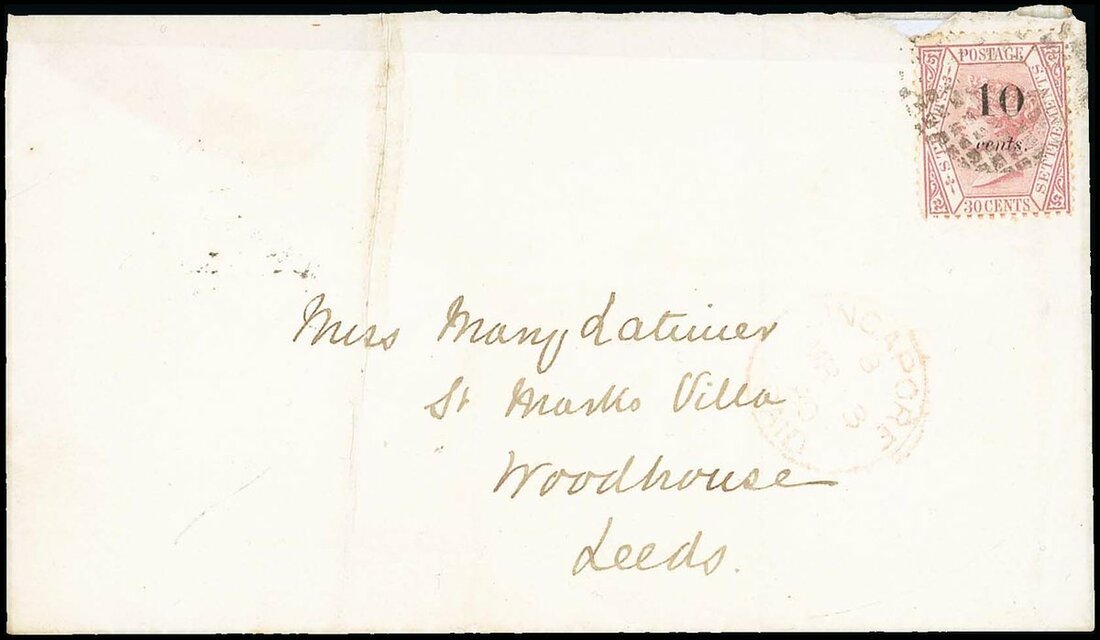 POSTAGE
STRAITS
SETTLEMENTS
10
cents.
30 CENTS
Miss Mary Latimer
St Marks Villa
Woodhouse
Leeds.
SINGAPORE
PAID